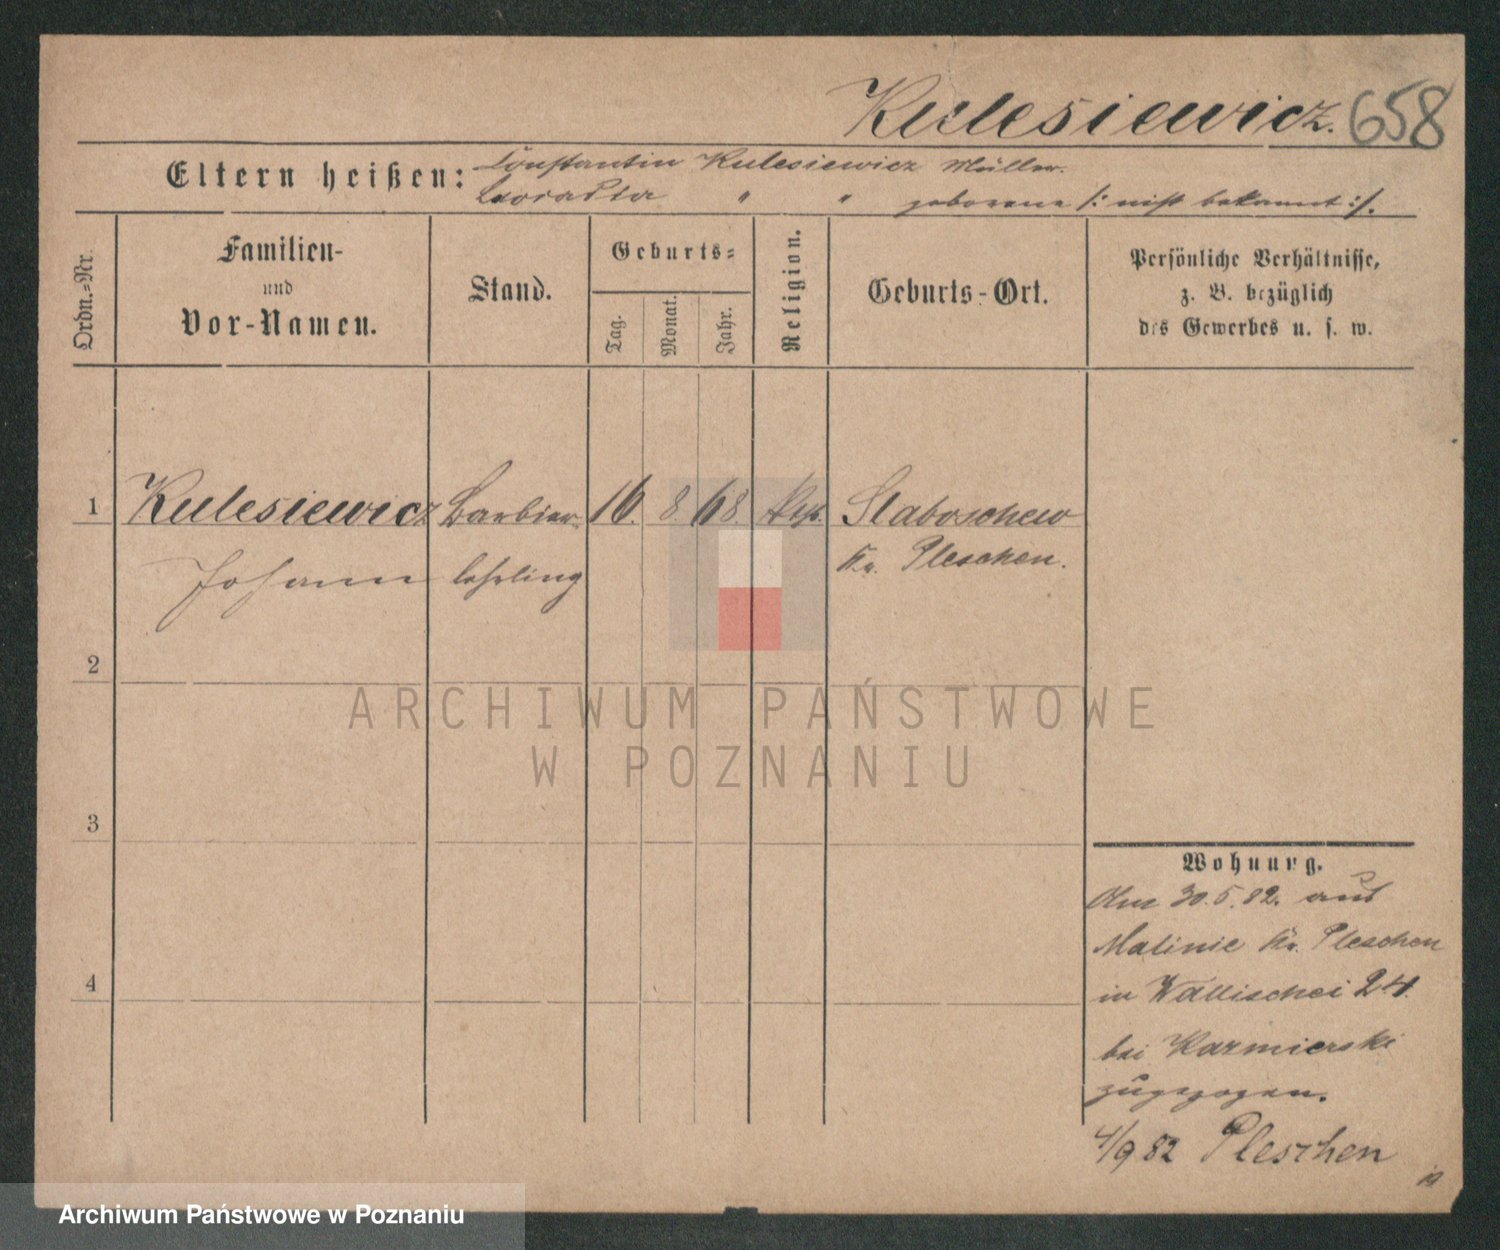 Kulesiewicz. 658
Eltern heißen: Constantin Kulesiewicz Müller.
" " geborene /: nicht bekannt :/.
Ordn.=Nr.
Familien-
und
Vor-Namen.
Stand.
Geburts=
Tag.
Monat.
Jahr.
Religion.
Geburts-Ort.
Persönliche Verhältnisse,
z. B. bezüglich
des Gewerbes u. s. w.
1 Kulesiewicz Barbier 16. 8. 68. Slaboschew
Johann lehrling Kr. Pleschen.
2
3
4
Wohnung.
Am 30.5.82. aus
Malinie Kr. Pleschen
in Wallischei 24.
bei Kazmierski
zugezogen.
4/9 82 Pleschen
ARCHIWUM PAŃSTWOWE
W POZNANIU
Archiwum Państwowe w Poznaniu